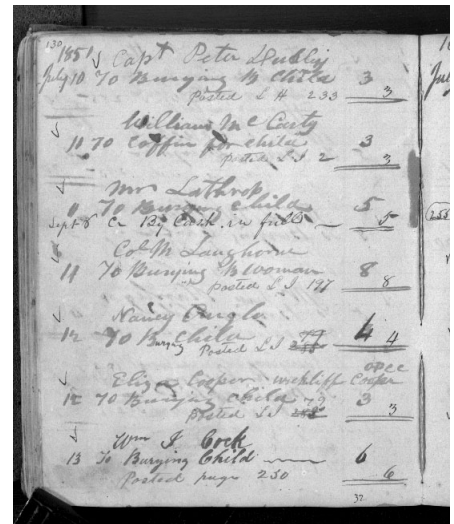 130
1851 Capt Peter Dudley
July 10 To Burying B Child 3 3
Posted L H 233
William McCarty
11 To Coffin for child 3 3
Posted L I 2
Mrs Lathrop
11 To Burying Child 5
Sept 8 Cr By Cash in full 5
Col M Langhorne
11 To Burying B Woman 8 8
Posted L I 197
Nancy
12 To Burying Child 4 4
Posted L I 79
Eliza Cooper Cooper
12 To Burying Child 3 3
Posted L I 79
Wm J Cock
13 To Burying Child 6 6
Posted page 250
32